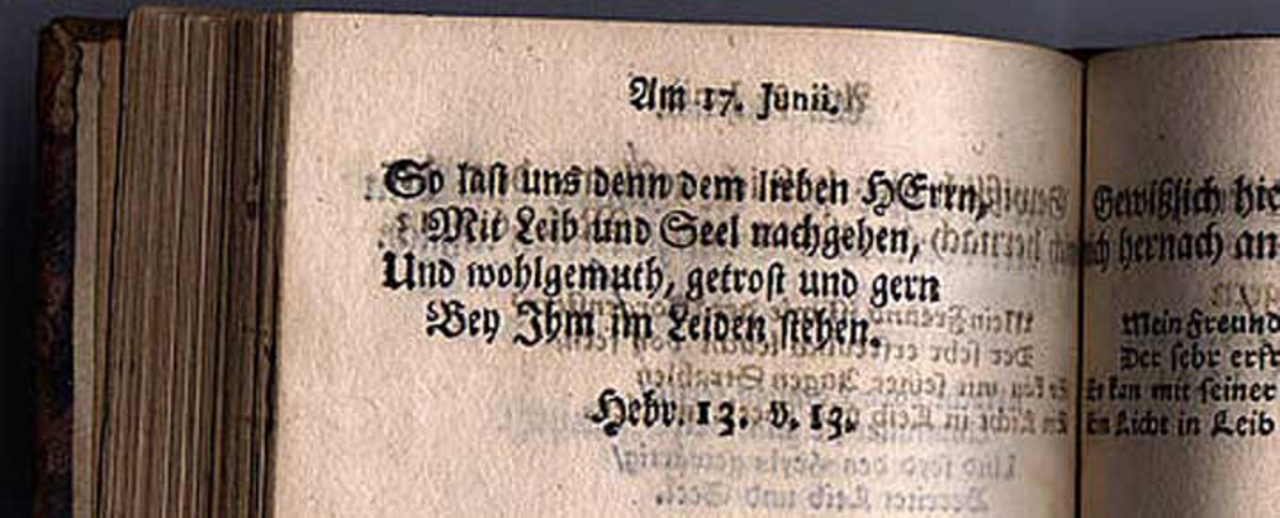 Am 17. Junii.
So last uns denn dem lieben HErrn,
Mit Leib und Seel nachgehen,
Und wohlgemuth, getrost und gern
Bey Ihm im Leiden stehen.
Hebr. 13. v. 13.
Gewißlich hie
hernach an
Mein Freund
Der sehr erfr
kan mit seiner
Licht in Leib